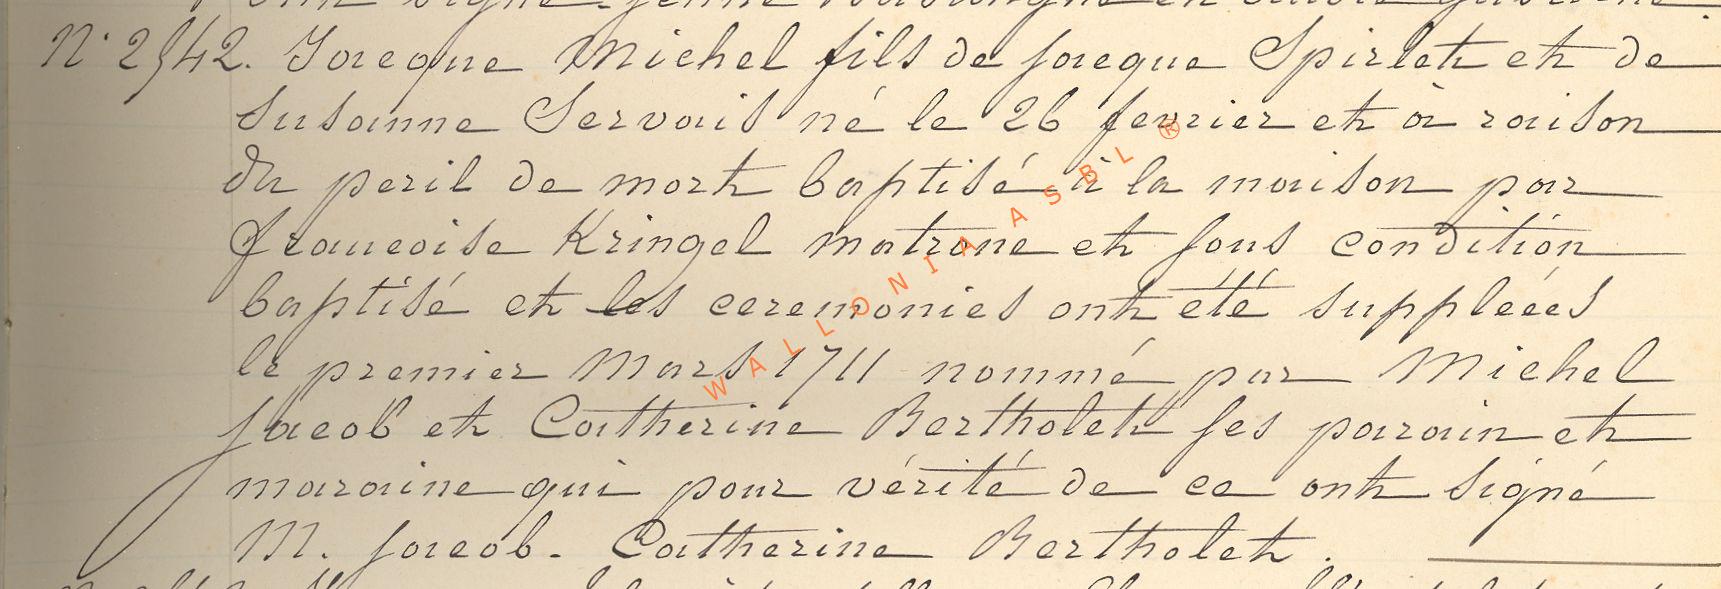 N° 2542. Jacque Michel fils de jacque Spirlet et de
Susanne Servais né le 26 fevrier et à raison
du peril de mort baptisé à la maison par
francoise Kringel matrone et sous condition
baptisé et les ceremonies ont été suppléées
le premier Mars 1711 nommé par Michel
jacob et Catherine Bertholet ses parain et
maraine qui pour vérité de ce ont signé
M. jacob. Catherine Bertholet.
WALLONIA ASBL ®